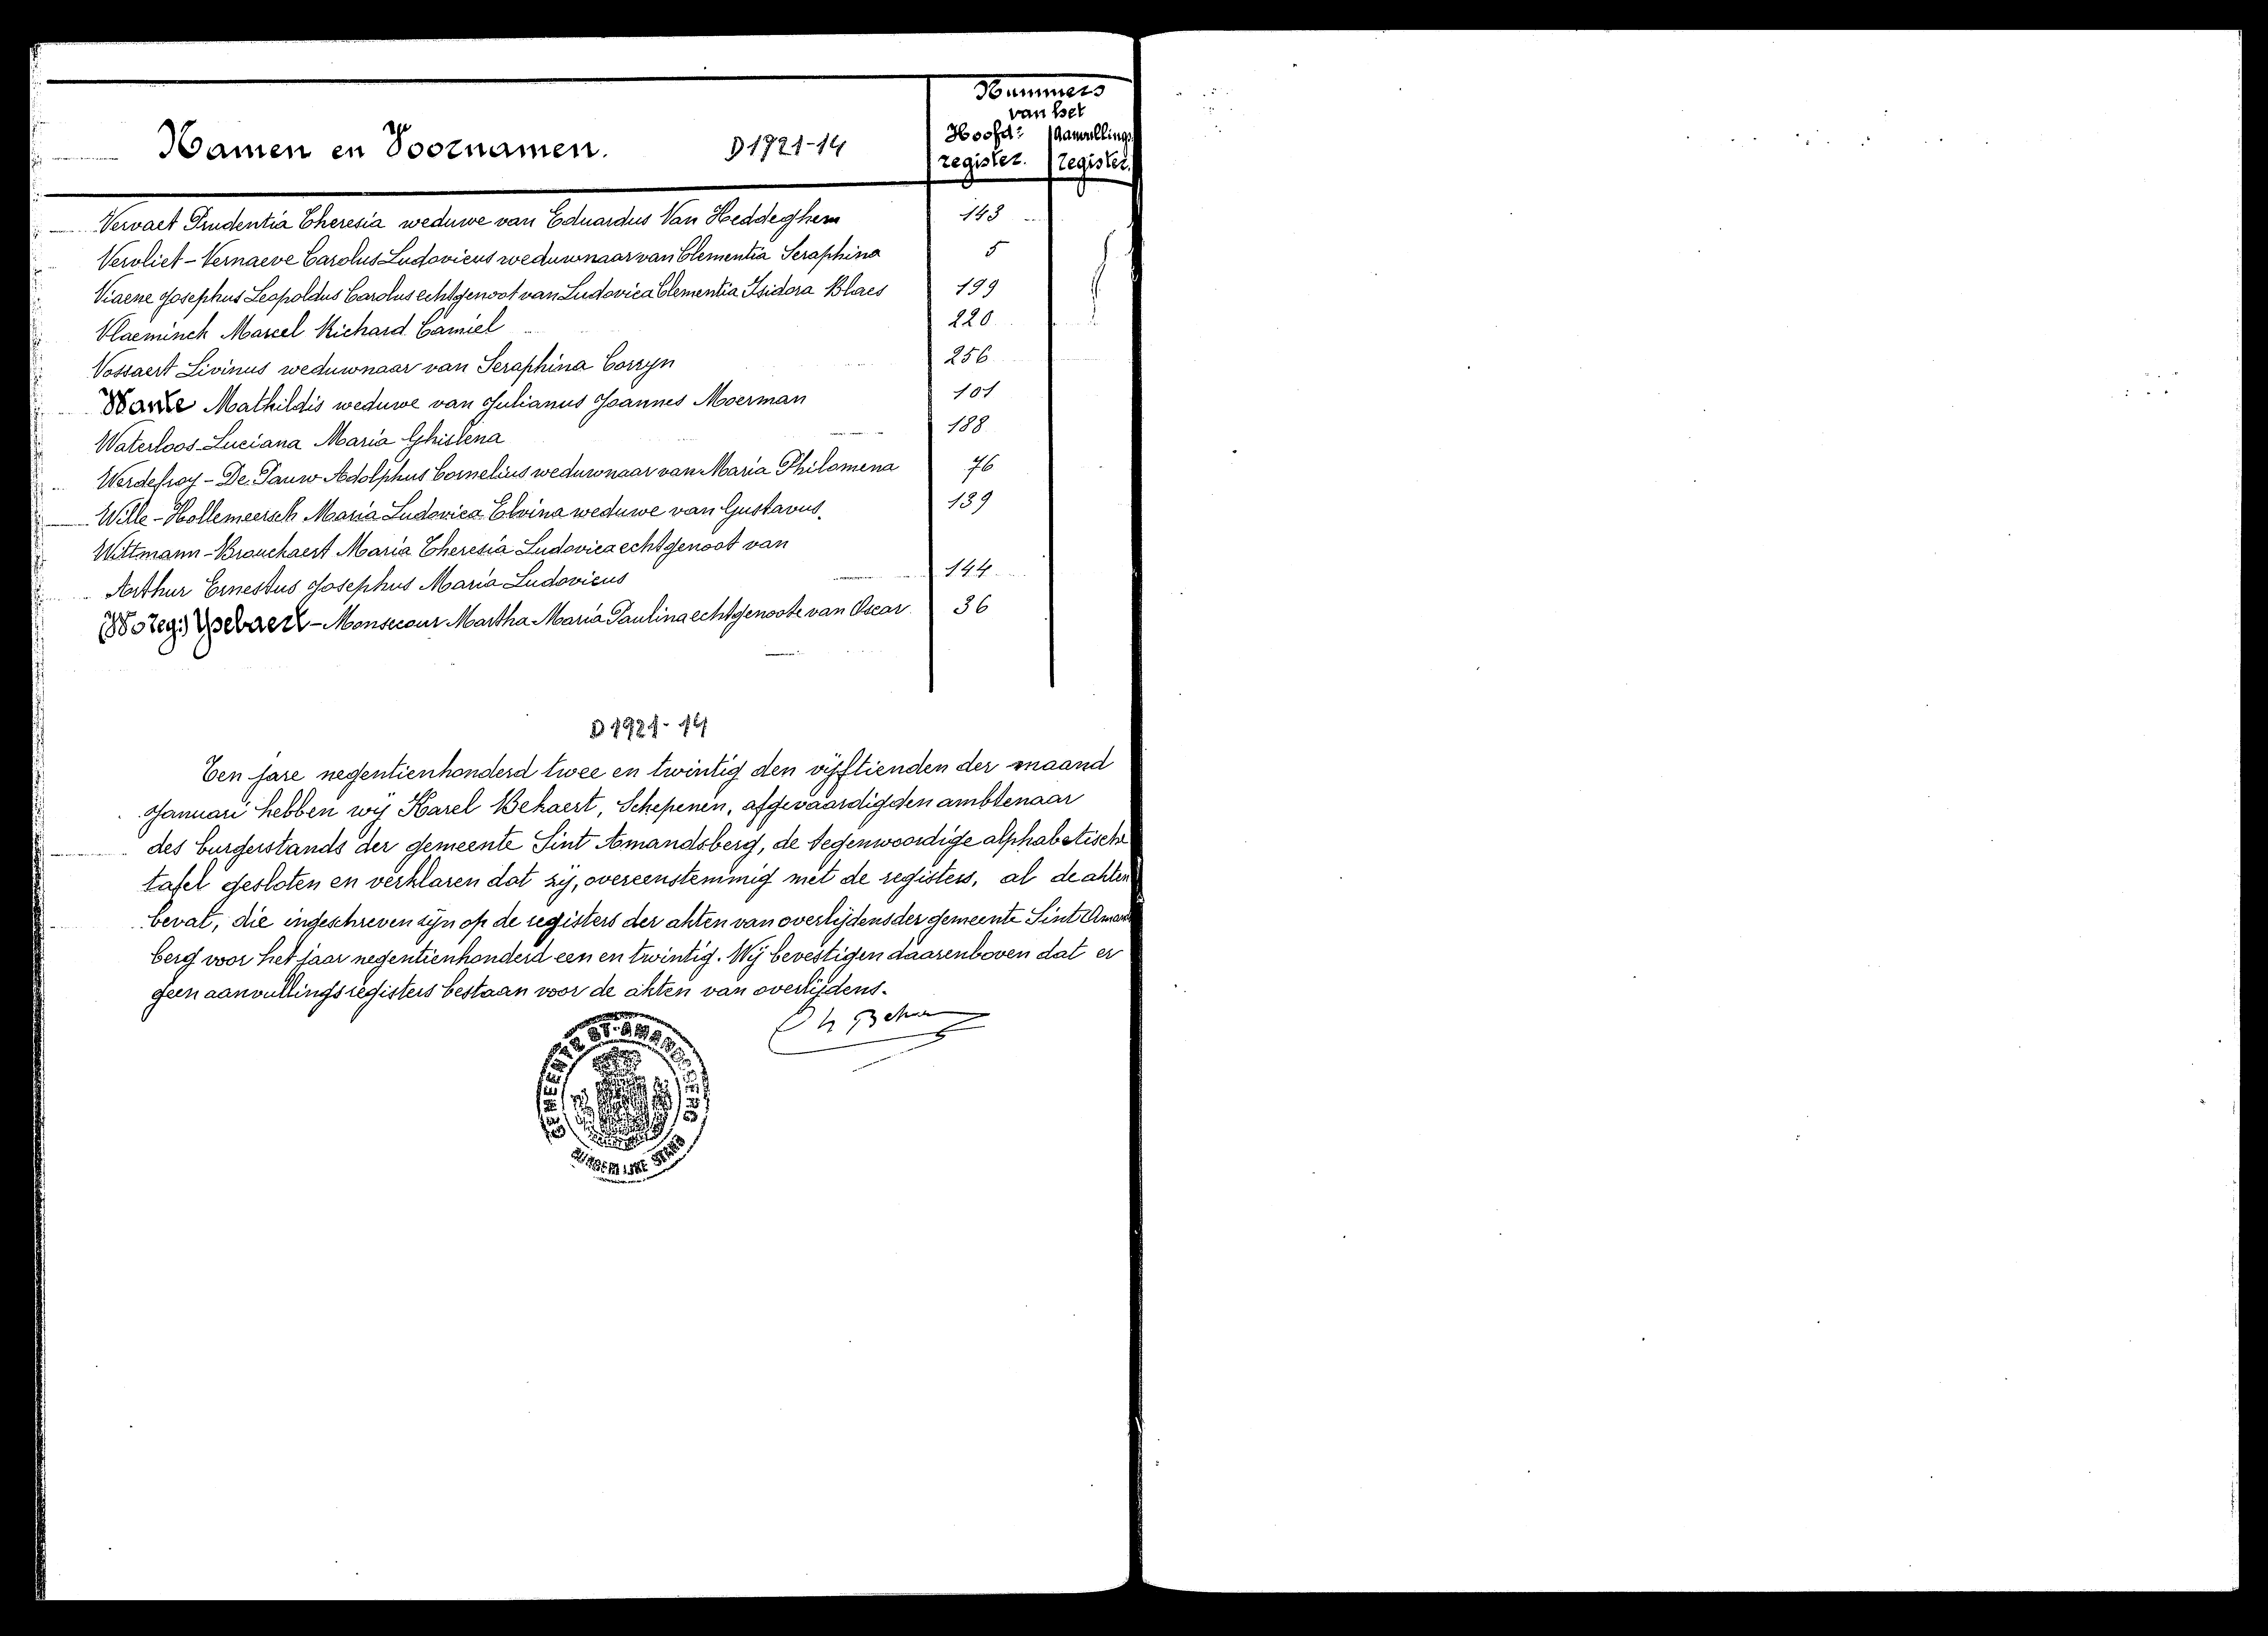 Nummers
van het
Namen en Voornamen. D 1921-14 Hoofd= Aanvullings
register. register.
Vervaet Prudentia Theresia weduwe van Eduardus Van Heddeghem 143
Vervliet - Vernaeve Carolus Ludovicus weduwnaar van Clementia Seraphina 5
Viaene Josephus Leopoldus Carolus echtgenoot van Ludovica Clementia Isidora Blaes 199
Vlaeminck Marcel Richard Camiel 220
Vossaert Livinus weduwnaar van Seraphina Corryn 256
Wante Mathildis weduwe van Julianus Joannes Moerman 101
Waterloos Luciana Maria Ghislena 188
Werdefroy - De Pauw Adolphus Cornelius weduwnaar van Maria Philomena 76
Wille - Hollemeersch Maria Ludovica Elvina weduwe van Gustavus. 139
Wittmann - Brouckaert Maria Theresia Ludovica echtgenoot van
Arthur Ernestus Josephus Maria Ludovicus 144
Ysebaert - Monsecour Martha Maria Paulina echtgenoote van Oscar 36
D 1921-14
Ten jare negentienhonderd twee en twintig den vijftienden der maand
Januari hebben wij Karel Bekaert, Schepenen, afgevaardigden ambtenaar
des burgerstands der gemeente Sint Amandsberg, de tegenwoordige alphabetische
tafel gesloten en verklaren dat zij, overeenstemmig met de registers, al de akten
bevat, die ingeschreven zijn op de registers der akten van overlijdens der gemeente Sint Amands
berg voor het jaar negentienhonderd een en twintig. Wij bevestigen daarenboven dat er
geen aanvullingsregisters bestaan voor de akten van overlijdens.
GEMEENTE ST-AMANDSBERG
BURGERLIJKE STAND